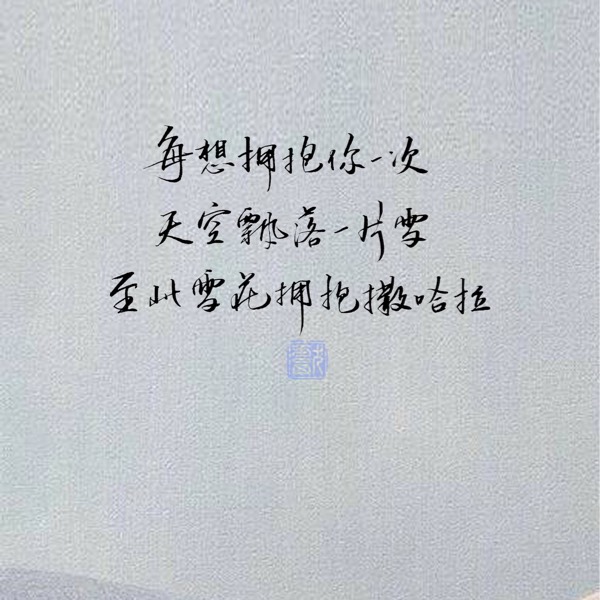 每想拥抱你一次
天空飘落一片雪
至此雪花拥抱撒哈拉